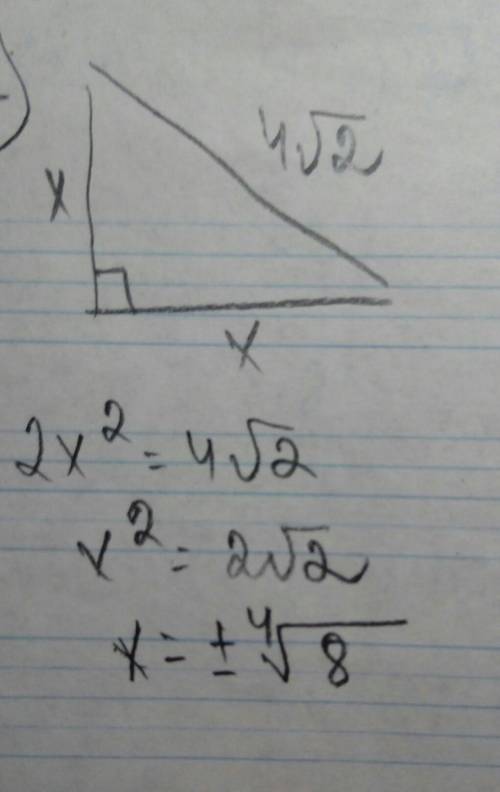 4√2
x
x
2x² = 4√2
x² = 2√2
x = ± ⁴√8